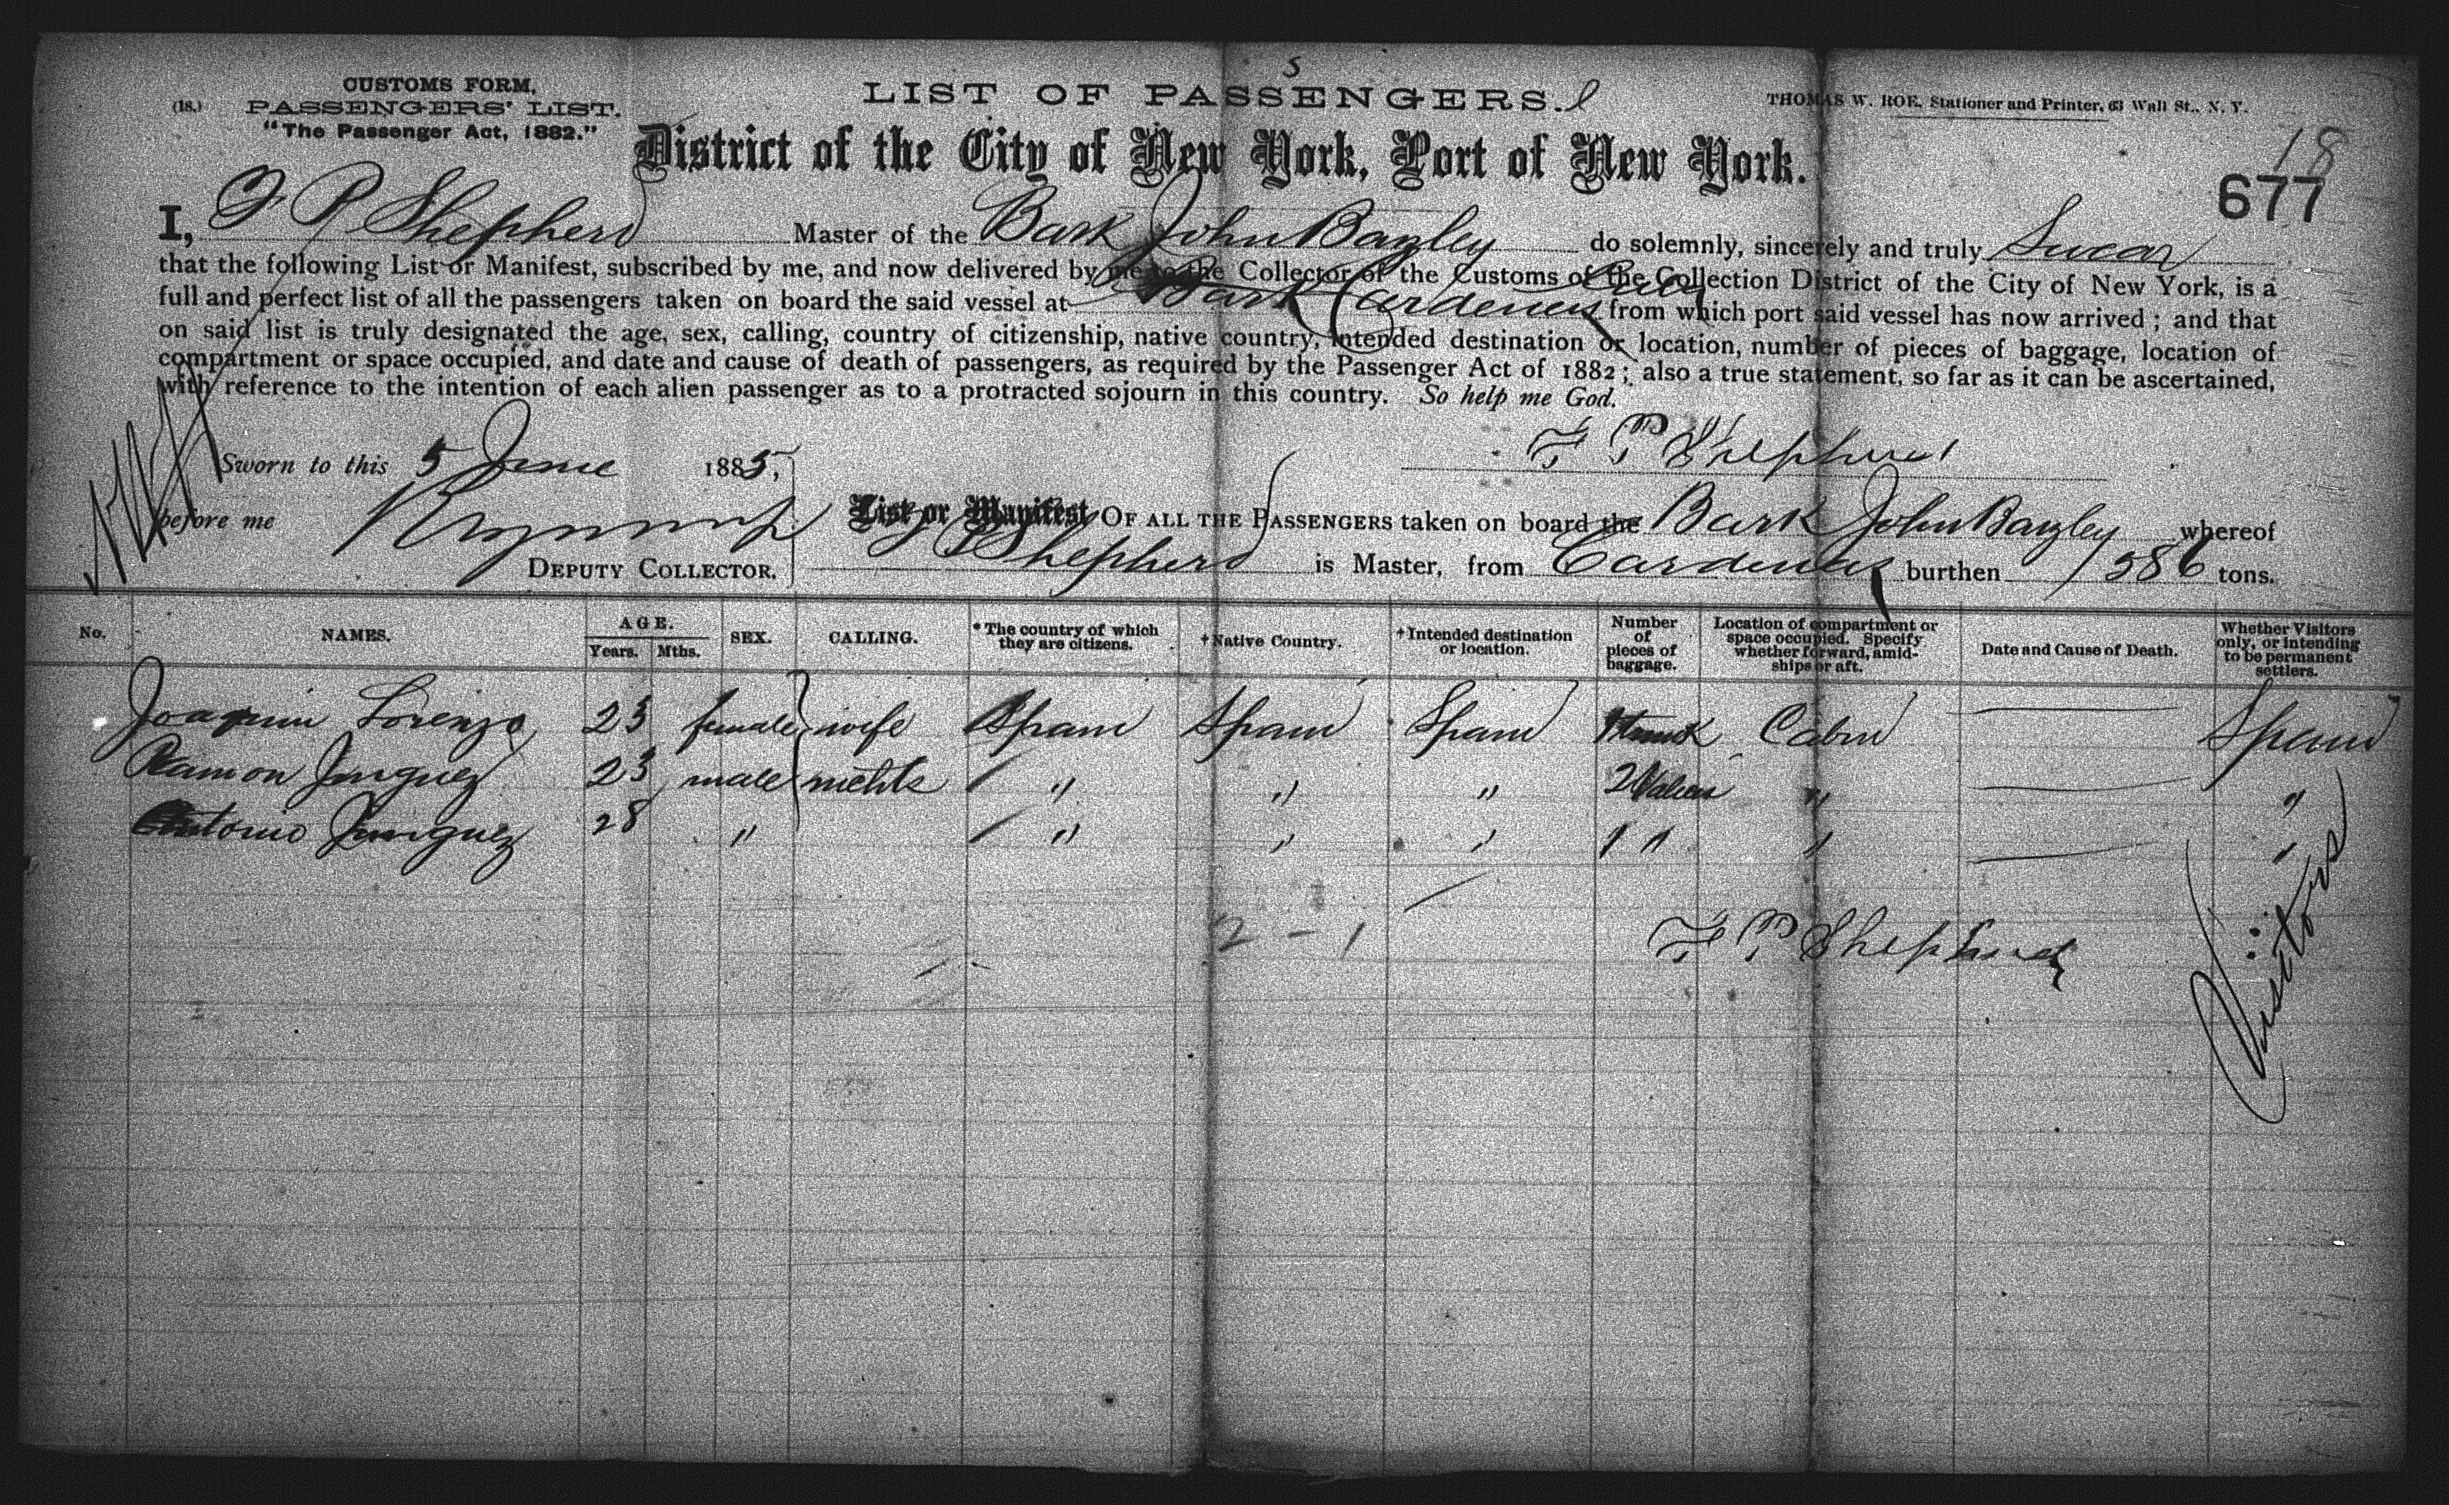 S
CUSTOMS FORM,
(18.) PASSENGERS' LIST.
"The Passenger Act, 1882."
LIST OF PASSENGERS.
THOMAS W. ROE, Stationer and Printer, 63 Wall St., N. Y.
District of the City of New York, Port of New York.
18
677
I, F P Shepherd Master of the Bark John Bazley do solemnly, sincerely and truly Swear
that the following List or Manifest, subscribed by me, and now delivered by me to the Collector of the Customs of the Collection District of the City of New York, is a
full and perfect list of all the passengers taken on board the said vessel at Cardenas from which port said vessel has now arrived; and that
on said list is truly designated the age, sex, calling, country of citizenship, native country, intended destination or location, number of pieces of baggage, location of
compartment or space occupied, and date and cause of death of passengers, as required by the Passenger Act of 1882; also a true statement, so far as it can be ascertained,
with reference to the intention of each alien passenger as to a protracted sojourn in this country. So help me God.
Sworn to this 5 June 1885,
F P Shepherd
before me
DEPUTY COLLECTOR.
List or Manifest OF ALL THE PASSENGERS taken on board the Bark John Bazley whereof
Shepherd is Master, from Cardenas burthen 586 tons.
No. NAMES. AGE. Years. Mths. SEX. CALLING. *The country of which they are citizens. †Native Country. †Intended destination or location. Number of pieces of baggage. Location of compartment or space occupied. Specify whether forward, amidships or aft. Date and Cause of Death. Whether Visitors only, or intending to be permanent settlers.
Joaquin Lorenzo 23 female wife Spain Spain Spain 1 trunk Cabin Spain
Ramon 23 male " " " 2 " "
Antonio 28 " " " " 1 " " "
Visitors
2 - 1
F P Shepherd